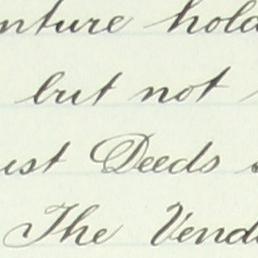 nture hold
but not
ust Deeds s
The Vend